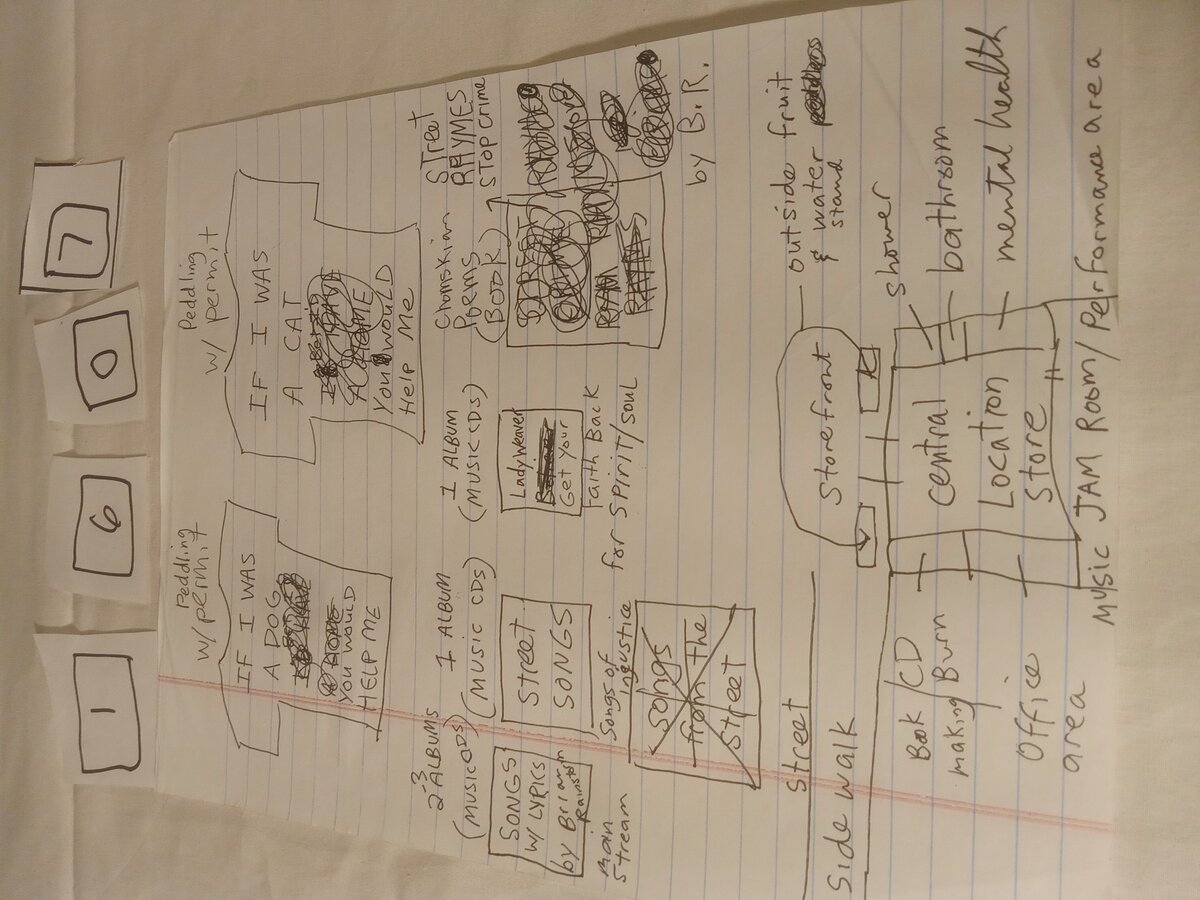 1
6
0
7
Peddling
w/permit
IF I WAS
A DOG
YOU WOULD
HELP ME
Peddling
w/ permit
IF I WAS
A CAT
You would
Help Me
2-3 ALBUMS
(MUSIC CDs)
SONGS
W/ LYRICS
by Brian
Main
Stream
1 ALBUM
(MUSIC CDs)
Street
SONGS
Songs of
ingustice
Songs
from the
Street
1 ALBUM
(MUSIC CDs)
Ladyweaver
Get your
Faith Back
for Spirit/soul
Chomskian
Poems
(BOOK)
STreet
RHYMES
STOP CRIME
by B.R.
Street
Side walk
Storefront
outside fruit
& water
stand
Shower
bathroom
mental health
central
Location
Store
Book/CD
making/Burn
Office
area
Music JAM Room/Performance area